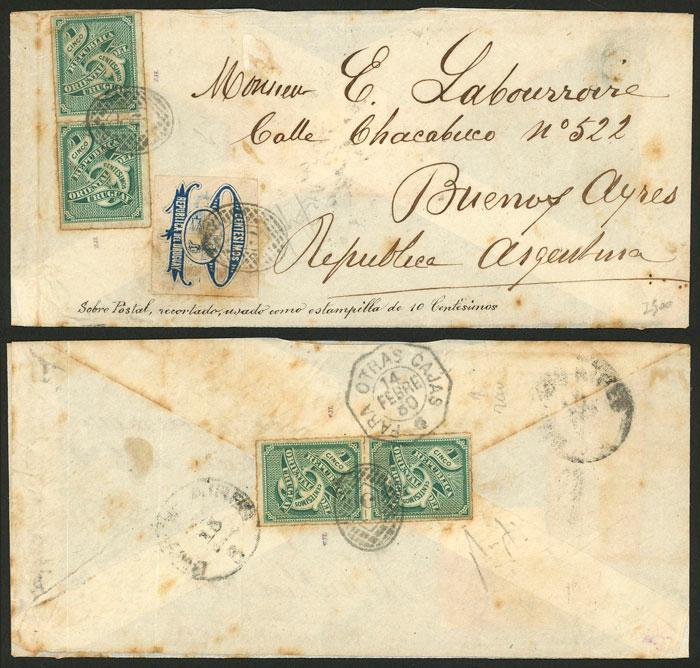 CINCO
REPUBLICA
ORIENTAL DEL
CENTESIMOS
URUGUAY
CINCO
REPUBLICA
ORIENTAL DEL
CENTESIMOS
URUGUAY
CENTESIMOS
REPUBLICA DEL URUGUAY
Monsieur E. Labourroire
Calle Chacabuco nº 522
Buenos Ayres
Republica Argentina
Sobre Postal, recortado, usado como estampilla de 10 Centésimos
2500
PARA OTRAS CAJAS
14
FEBRE
80
CINCO
REPUBLICA
ORIENTAL DEL
CENTESIMOS
URUGUAY
CINCO
REPUBLICA
ORIENTAL DEL
CENTESIMOS
URUGUAY